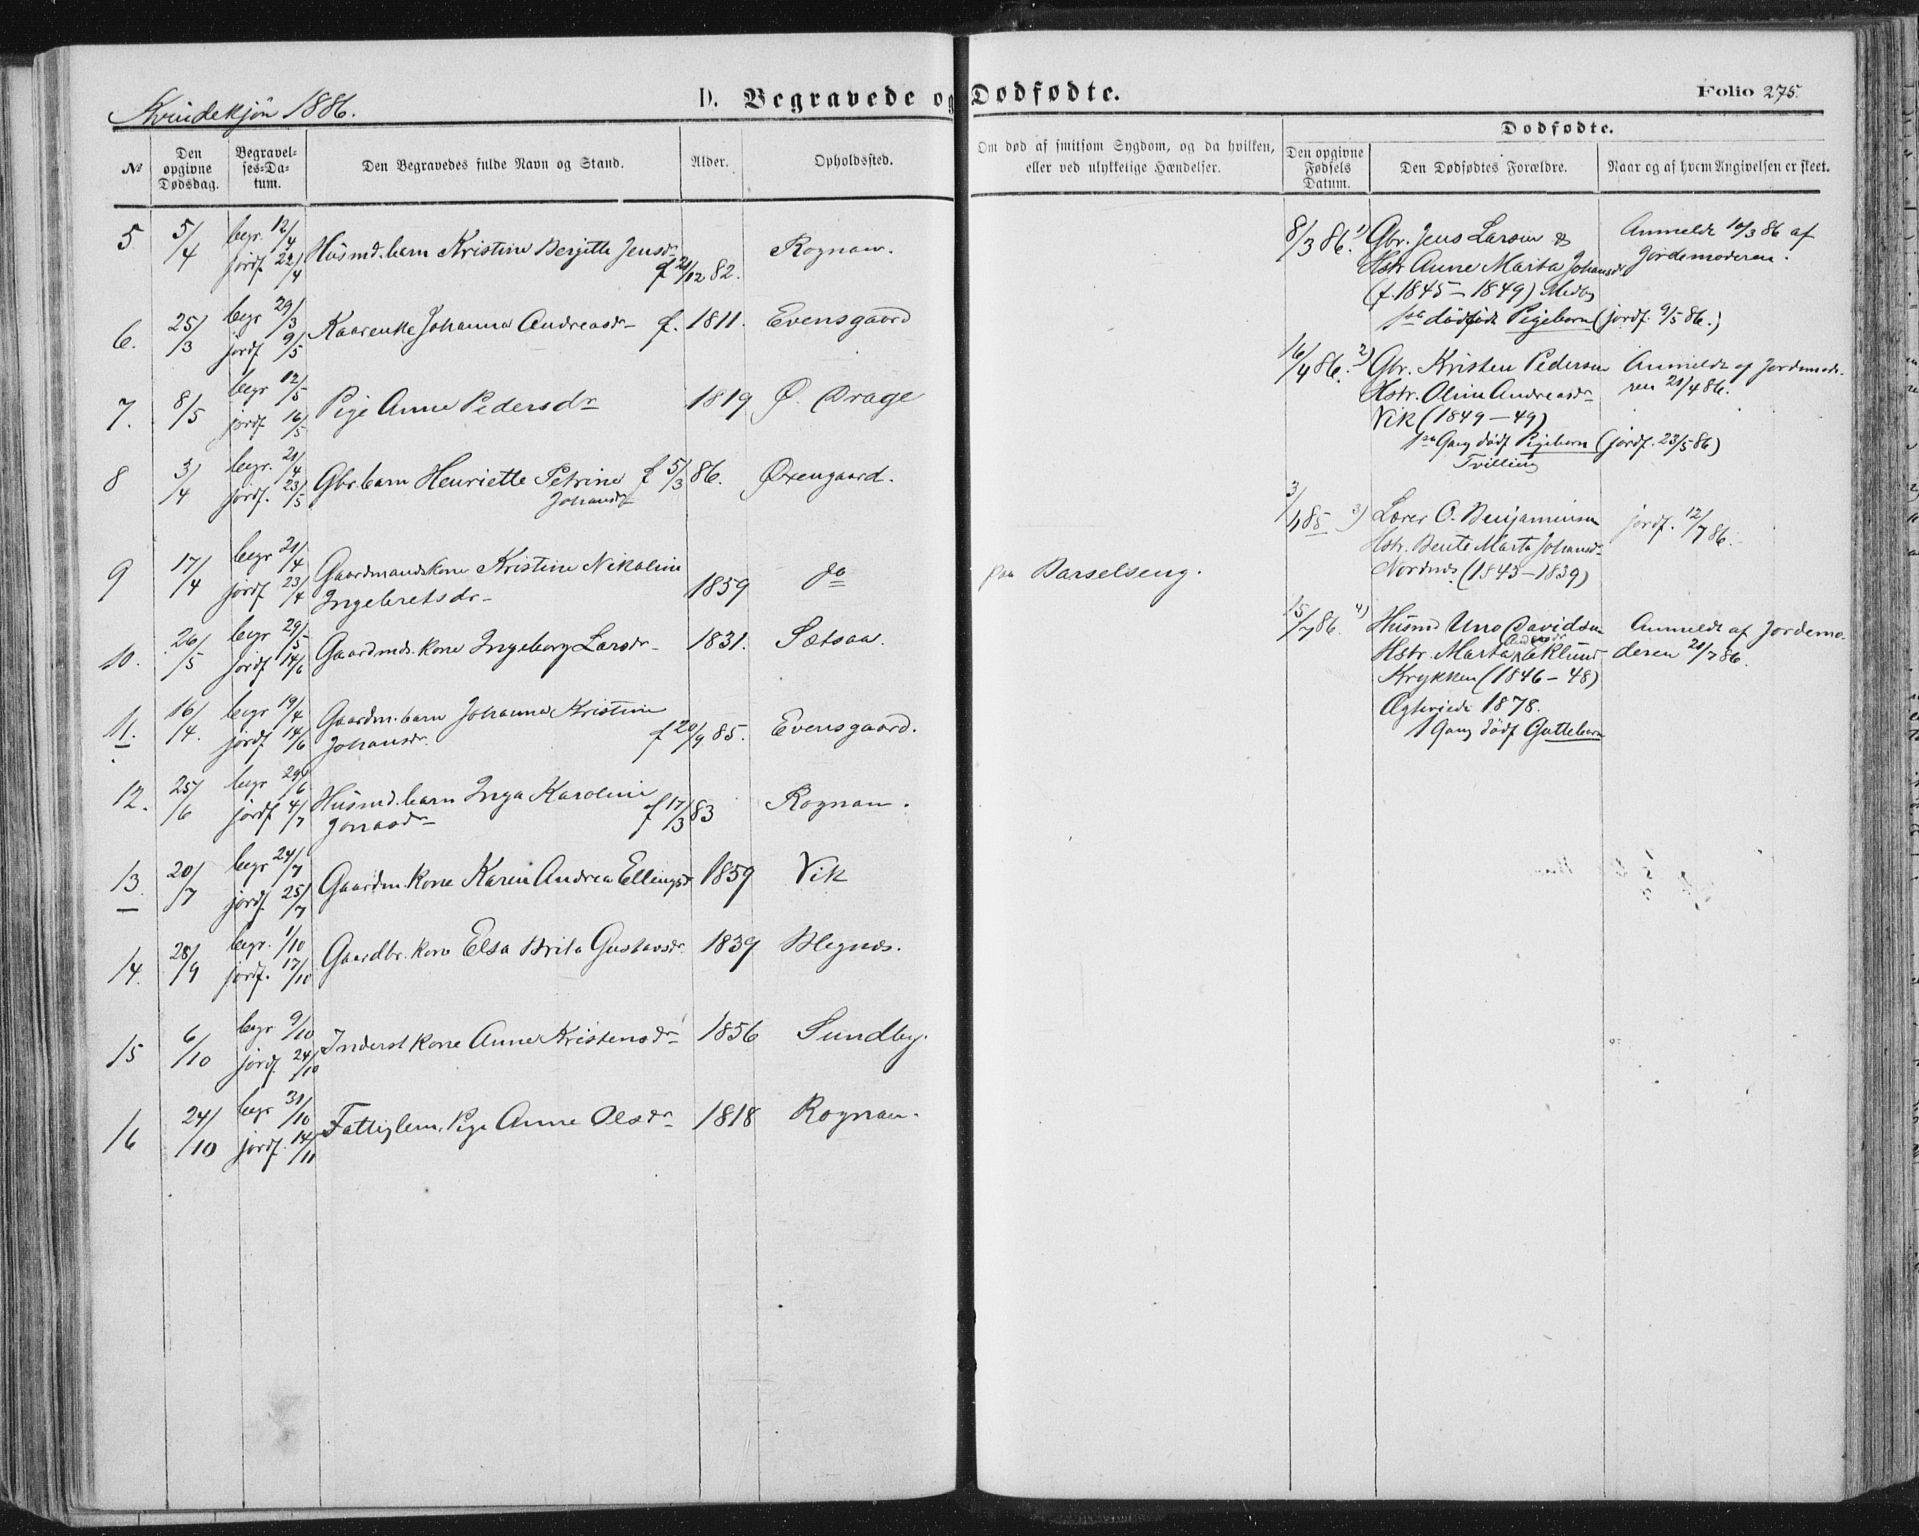 Kvindekjøn 1886.
D. Begravede og Dødfødte.
Folio 275.
№
Den opgivne Dødsdag.
Begravelses-Datum.
Den Begravedes fulde Navn og Stand.
Alder.
Opholdssted.
Om død af smitsom Sygdom, og da hvilken, eller ved ulykkelige Hændelser.
Dødfødte.
Den opgivne Fødsels Datum.
Den Dødfødtes Forældre.
Naar og af hvem Angivelsen er skeet.
5 5/4 begr. 12/4 jordf. 22/4 Husmd. barn Kristine Berjitte Jensdr f 21/12 82. Rognan.
6. 25/3 begr 29/3 jordf 9/5 Kaarenke Johanna Andreasdr f. 1811. Evensgaard
7. 8/5 begr 12/5 jordf 16/5 Pige Anne Pedersdr 1819 Ø. Drage
8 3/4 begr. 21/4 jordf. 23/5 Gbr. barn Henriette Petrine Johansdr f 5/3 86. Øxengaard.
9 17/4 begr 21/4 jordf 23/4 Gaardmandskone Kristine Nikoline Ingebretsdr 1859 do paa Barselseng.
10. 26/5 begr 29/5 jordf 14/6 Gaardmds. kone Ingeborg Larsdr 1831. Sætsaa.
11. 16/4. begr 19/4 jordf 14/6 Gaardm. barn Johanna Kristine Johansdr. f 20/9 85. Evensgaard.
12. 25/6 begr 29/6 jordf 4/7 Husmd. barn Inga Karoline Jonasdr f 17/3 83 Rognan.
13. 20/7 begr 24/7 jordf. 25/7 Gaardm. kone Karen Andrea Ellingsdr 1859 Vik
14. 28/9 begr. 1/10 jordf. 17/10 Gaardbr. kone Elsa Brita Gustavsdr 1839 Megnæs.
15 6/10 begr 9/10 jordf. 24/10 Inderst kone Anne Kristensdr 1856 Sundby.
16 24/10 begr 31/10 jordf. 14/11 Fattiglem. Pige Anne Olsdr 1818 Rognan.
8/3 86. 1) Gbr. Jens Larsen & Anmeldt 10/3 86 af
Hstr Anne Marta Johansdr Jordemoderen.
(f. 1845 – 1849) Medby
1ste dødfødt Pigebarn (jordf. 9/5 86.)
16/4 86. 2) Gbr. Kristen Pedersen Anmeldt af Jordemode-
Hstr. Oline Andreasdr ren 21/4 86.
Vik (1849 – 49)
1ste Gang dødf Pigebarn (jordf. 23/5 86)
Tvilling
3/4 85 3) Lærer O. Benjaminsen jordf. 12/7 86.
Hstr. Bente Marta Johansdr
Nordnæs (1843 – 1839)
15/7 86. 4) Husmd Uno Davidsen Anmeldt af Jordemo-
Hstr. Marta Andersdr Eklund deren 21/7 86.
Krykken (1846 – 48)
Ægteviede 1878.
1 Gang dødf Guttebarn